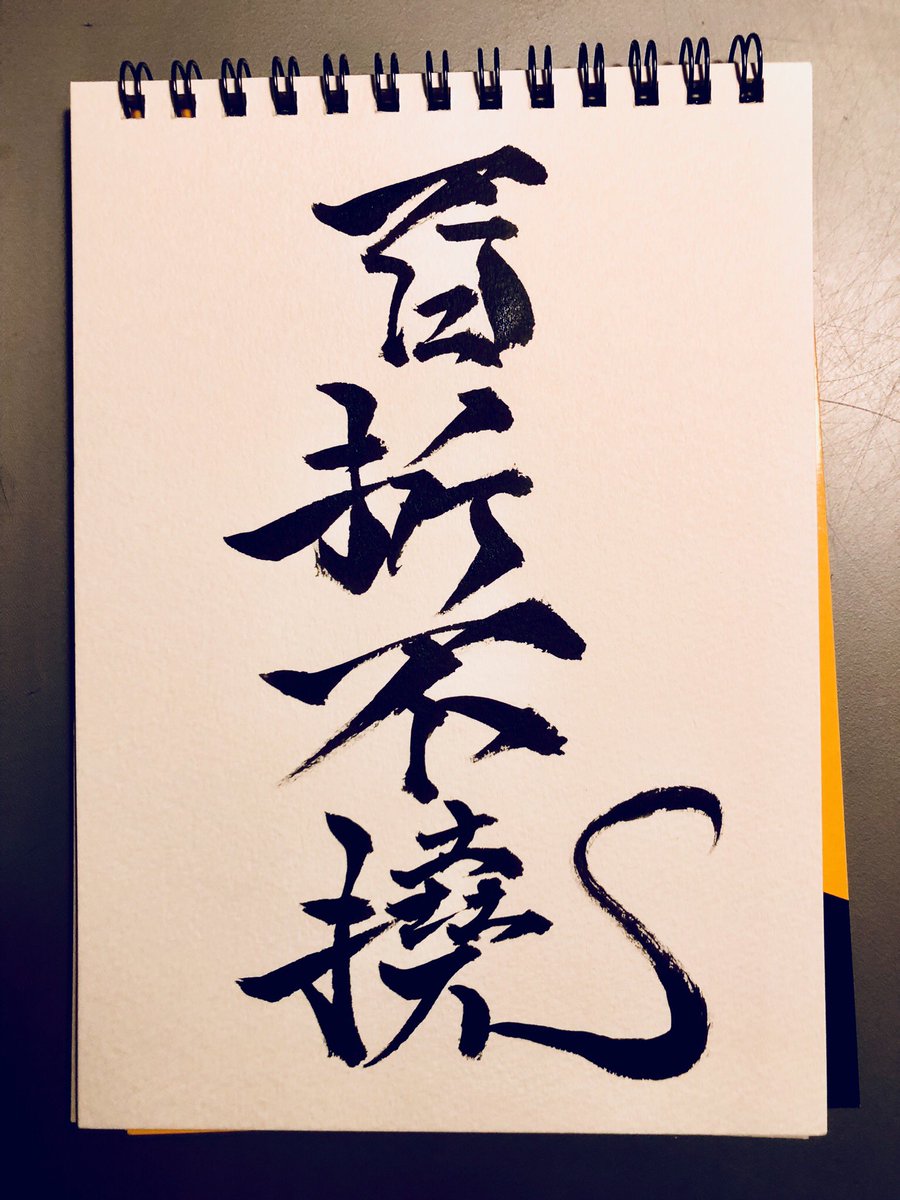 百折不撓